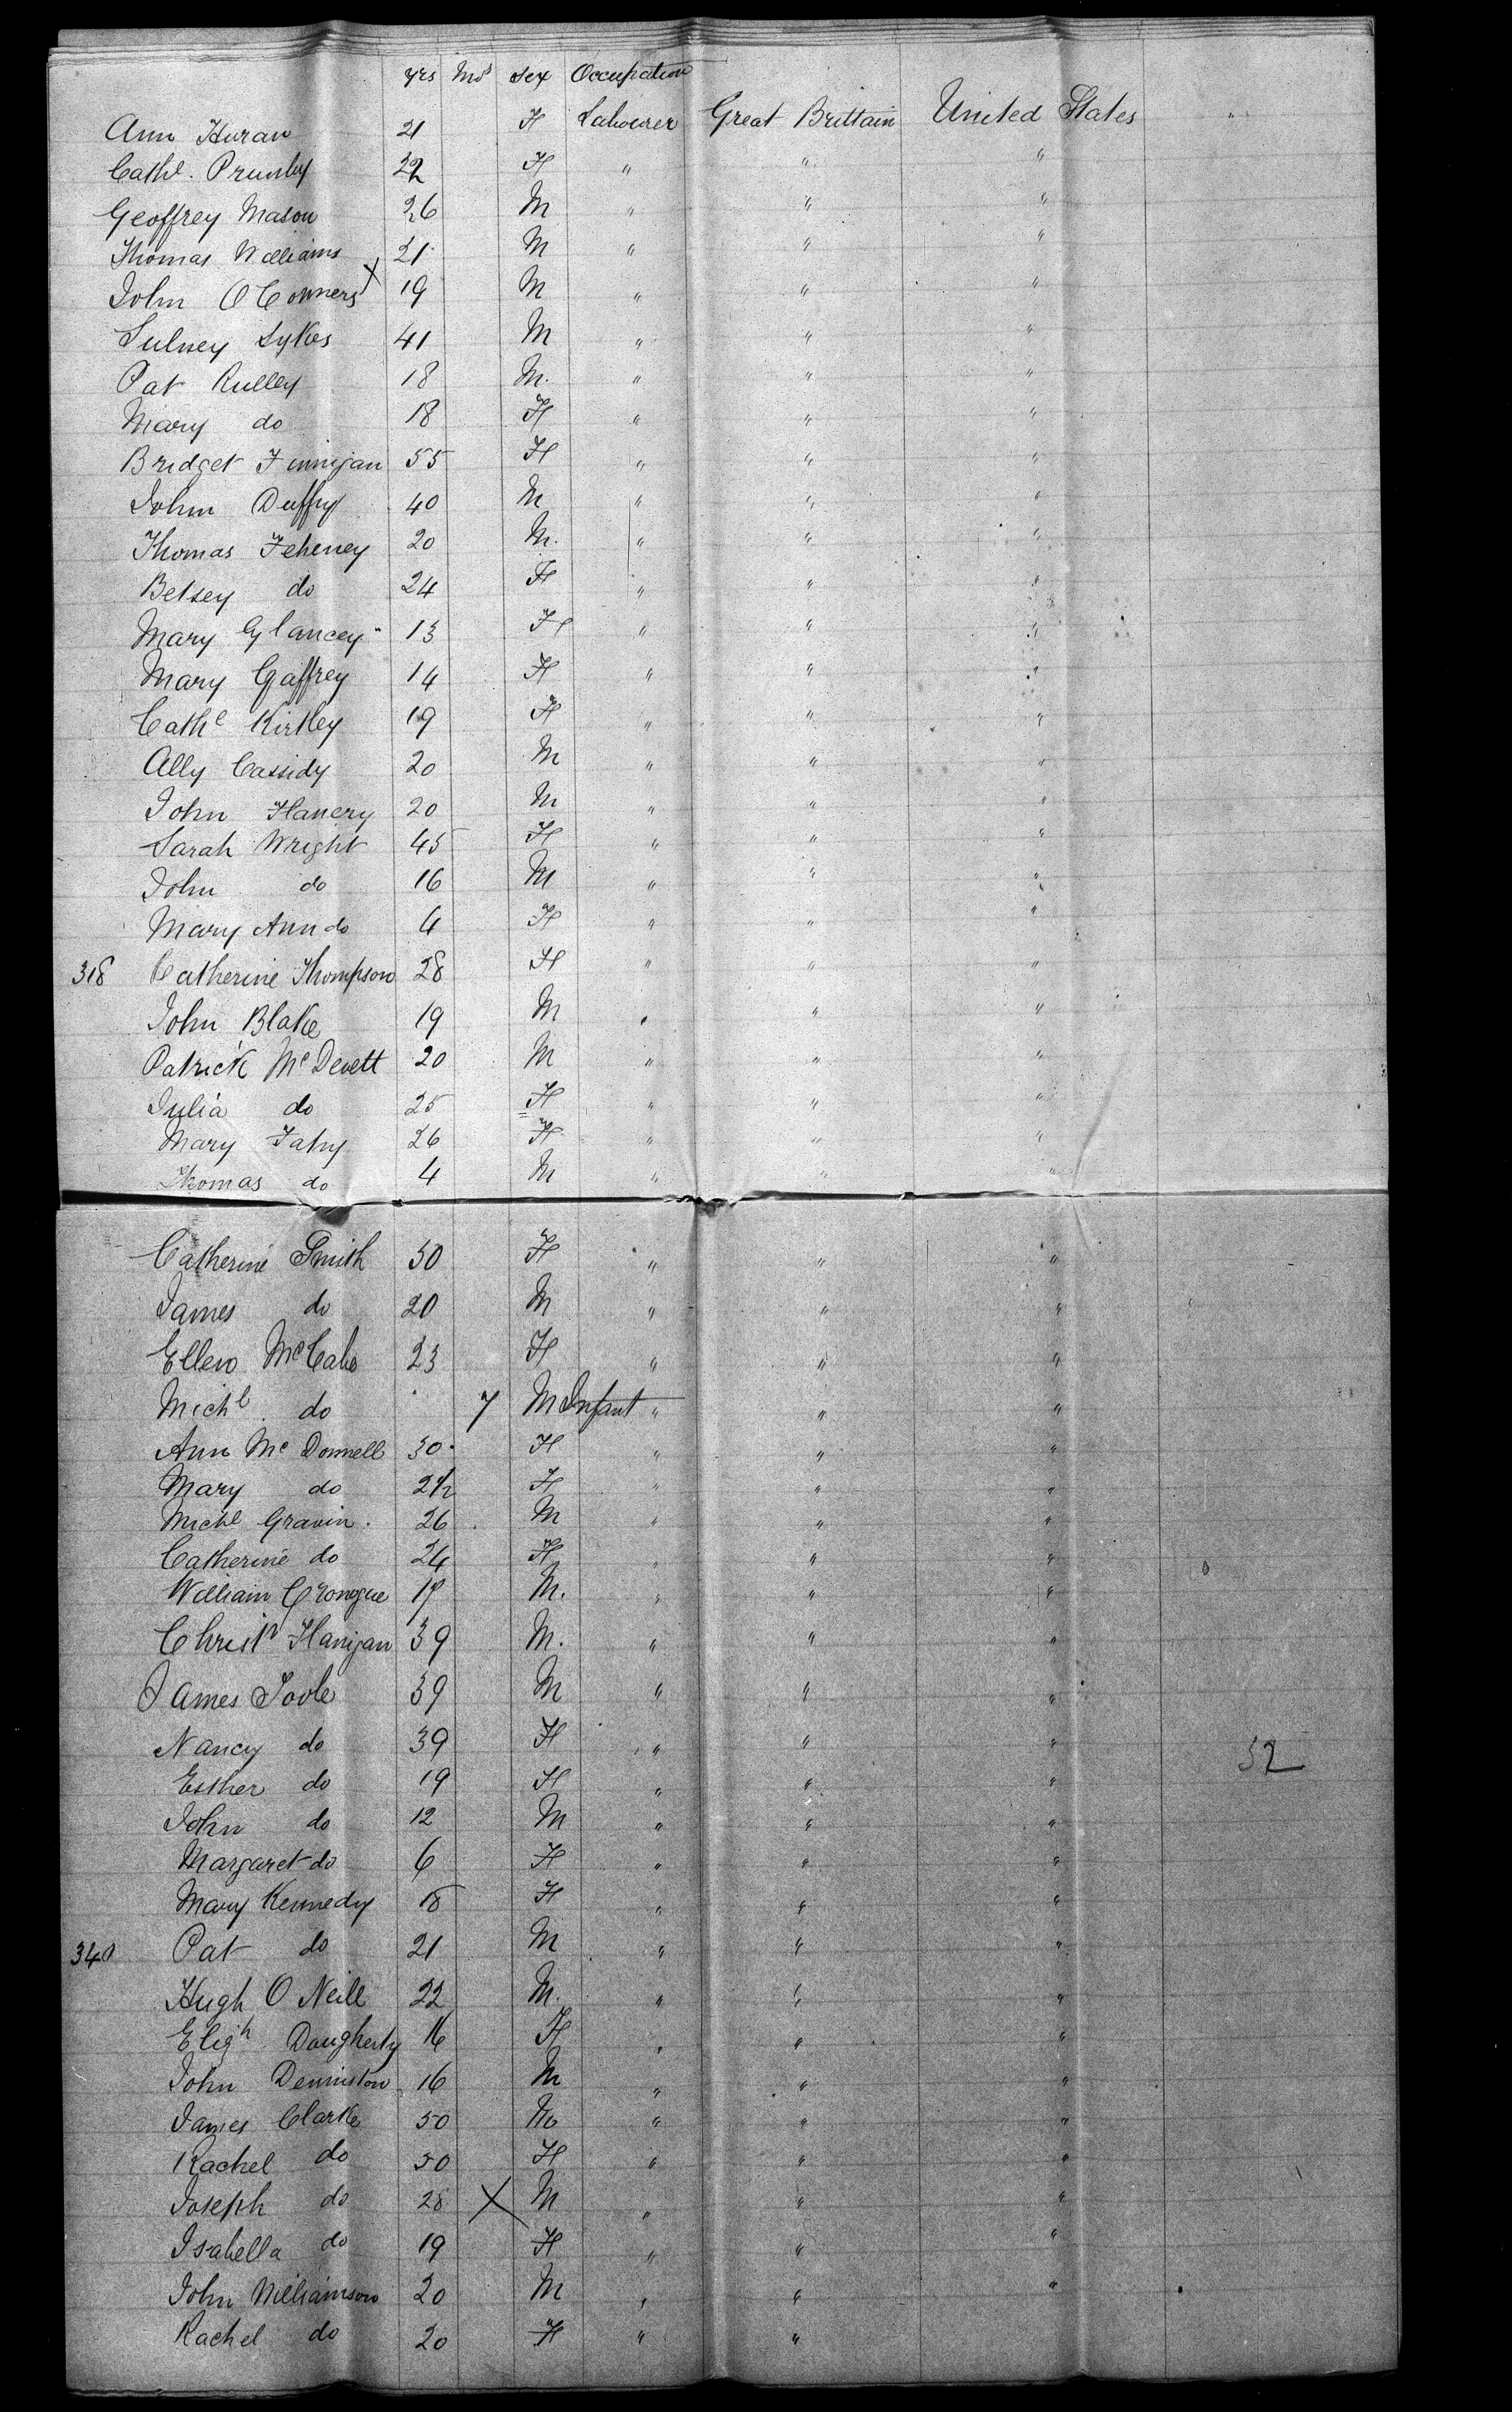 yrs Mos Sex Occupation
Ann Huran 21 F Labourer Great Brittain United States "
Cathl. Prunty 22 F " " "
Geoffrey Mason 26 M " " "
Thomas Williams 21 M " " "
John O Conners X 19 M " " "
Sulney Sykes 41 M " " "
Pat Rulley 18 M. " " "
Mary do 18 F " " "
Bridget Finnigan 55 F " " "
John Duffy 40 M " " "
Thomas Feheney 20 M. " " "
Betsey do 24 F " " "
Mary Glancey 13 F " " "
Mary Gaffrey 14 F " " "
Cathl Kirtley 19 F " " "
Ally Cassidy 20 M " " "
John Flanery 20 M " " "
Sarah Wright 45 F " " "
John do 16 M " " "
Mary Ann do 4 F " " "
318 Catherine Thompson 28 F " " "
John Blake 19 M " " "
Patrick McDevett 20 M " " "
Julia do 25 F " " "
Mary Fahy 26 F " " "
Thomas do 4 M " " "
Catherine Smith 50 F " " "
James do 20 M " " "
Ellen McCabe 23 F " " "
Michl do 7 M Infant " " "
Ann McDonnell 30 F " " "
Mary do 2½ F " " "
Michl Gravin. 26 M " " "
Catherine do 24 F " " "
William Grongue 17 M. " " "
Christr Flanigan 39 M. " " "
James Toole 39 M " " "
Nancy do 39 F " " " 52
Esther do 19 F " " "
John do 12 M " " "
Margaret do 6 F " " "
Mary Kennedy 18 F " " "
340 Pat do 21 M " " "
Hugh O Neill 22 M. " " "
Eligh Daugherty 16 F " " "
John Denniston 16 M " " "
James Clarke 50 M " " "
Rachel do 50 F " " "
Joseph do 28 X M " " "
Isabella do 19 F " " "
John Williamson 20 M " " "
Rachel do 20 F " "